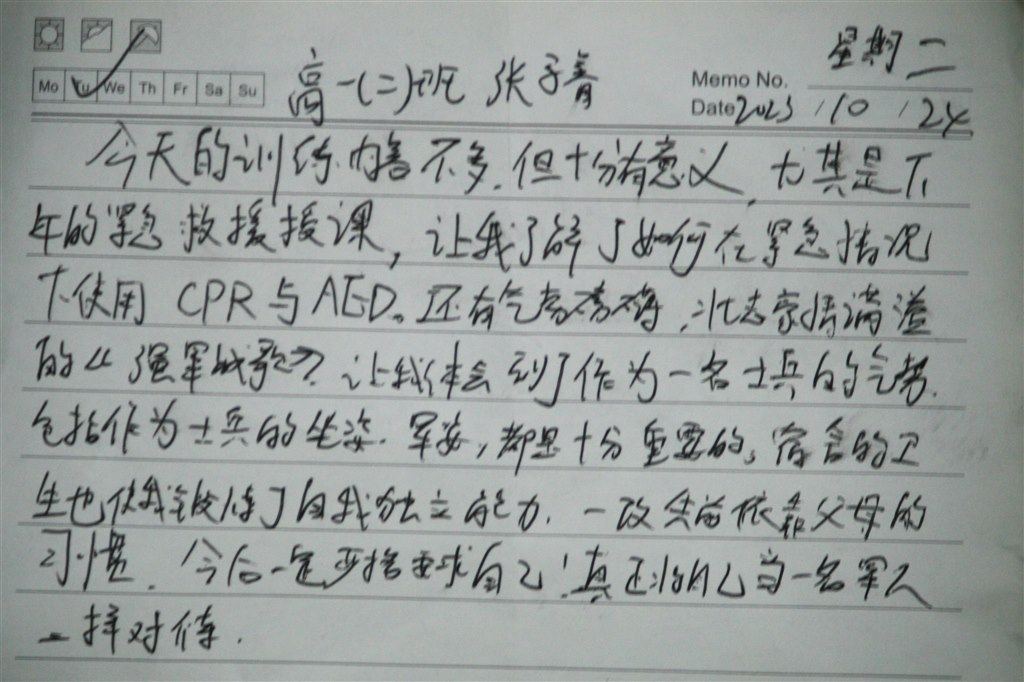 星期二
Mo Tu We Th Fr Sa Su
高一(二)班 张子
Memo No.
Date 2023 / 10 / 24
今天的训练内容不多,但十分有意义,尤其是下
午的紧急救援授课,让我了解了如何在紧急情况
下使用CPR与AED。还有气势磅礴,壮志豪情满溢
的《强军战歌》,让我体会到了作为一名士兵的气势.
包括作为士兵的坐姿.军姿,都是十分重要的。宿舍的卫
生也使我锻炼了自我独立能力.一改先前依靠父母的
习惯.今后一定严格要求自己!真正将自己当一名军人
一样对待.